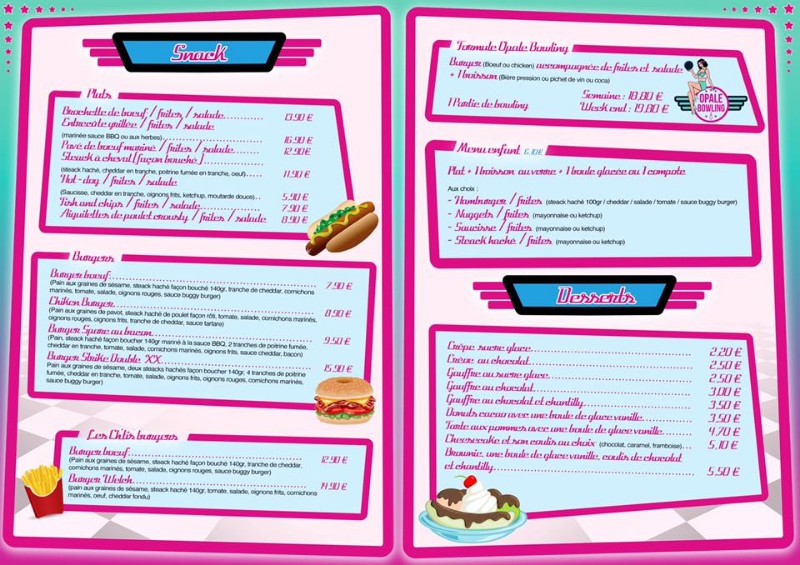 Snack
Plats
Brochette de boeuf / frites / salade............ 13.90 €
Entrecôte grillée / frites / salade
(marinée sauce BBQ ou aux herbes)............ 16.90 €
Pavé de boeuf mariné / frites / salade............ 12.90 €
Steack à cheval [façon bouché]............
(steack haché, cheddar en tranche, poitrine fumée en tranche, oeuf)...... 11.90 €
Hot-dog / frites / salade
(Saucisse, cheddar en tranche, oignons frits, ketchup, moutarde douce)... 5.90 €
Fish and chips / frites / salade............ 7.90 €
Aiguilettes de poulet crousty / frites / salade 8.90 €
Burgers
Burger boeuf............ 7.90 €
(Pain aux graines de sésame, steack haché façon bouché 140gr, tranche de cheddar, cornichons
marinés, tomate, salade, oignons rouges, sauce buggy burger)
Chiken Burger............ 8.90 €
(Pain aux graines de pavot, steack haché de poulet façon rôti, tomate, salade, cornichons marinés,
oignons rouges, oignons frits, tranche de cheddar, sauce tartare)
Burger Spare au bacon............ 9.50 €
(Pain, steack haché façon boucher 140gr mariné à la sauce BBQ, 2 tranches de poitrine fumée,
cheddar en tranche, tomate, salade, cornichons marinés, oignons frits, sauce cheddar, bacon)
Burger Strike Double XX............ 15.90 €
Pain aux graines de sésame, deux steacks hachés façon boucher 140gr, 4 tranches de poitrine
fumée, cheddar en tranche, tomate, salade, oignons frits, oignons rouges, cornichons marinés,
sauce buggy burger)
Les Ch'tis burgers
Burger boeuf............ 12.90 €
(Pain aux graines de sésame, steack haché façon bouché 140gr, tranche de cheddar,
cornichons marinés, tomate, salade, oignons rouges, sauce buggy burger)
Burger Welch............ 14.90 €
(pain aux graines de sésame, steack haché 140gr, tomate, salade, oignons frits, cornichons
marinés, oeuf, cheddar fondu)
Formule Opale Bowling
Burger (Boeuf ou chicken) accompagnée de frites et salade
+ 1 boisson (Bière pression ou pichet de vin ou coca)
Semaine : 18.00 €
1 Partie de bowling Week end : 19.80 €
OPALE
BOWLING
Menu enfant 6.10 €
Plat + 1 boisson au verre + 1 boule glacée ou 1 compote
Aux choix :
- Hamburger / frites (steack haché 100gr / cheddar / salade / tomate / sauce buggy burger)
- Nuggets / frites (mayonnaise ou ketchup)
- Saucisse / frites (mayonnaise ou ketchup)
- Steack haché / frites (mayonnaise ou ketchup)
Desserts
Crêpe sucre glace............ 2.20 €
Crêpe au chocolat............ 2.50 €
Gauffre au sucre glace............ 2.50 €
Gauffre au chocolat............ 3.00 €
Gauffre au chocolat et chantilly............ 3.50 €
Donuts cacao avec une boule de glace vanille............ 3.50 €
Tarte aux pommes avec une boule de glace vanille............ 4.70 €
Cheesecake et son coulis au choix (chocolat, caramel, framboise)... 5.10 €
Brownie, une boule de glace vanille, coulis de chocolat
et chantilly............ 5.50 €